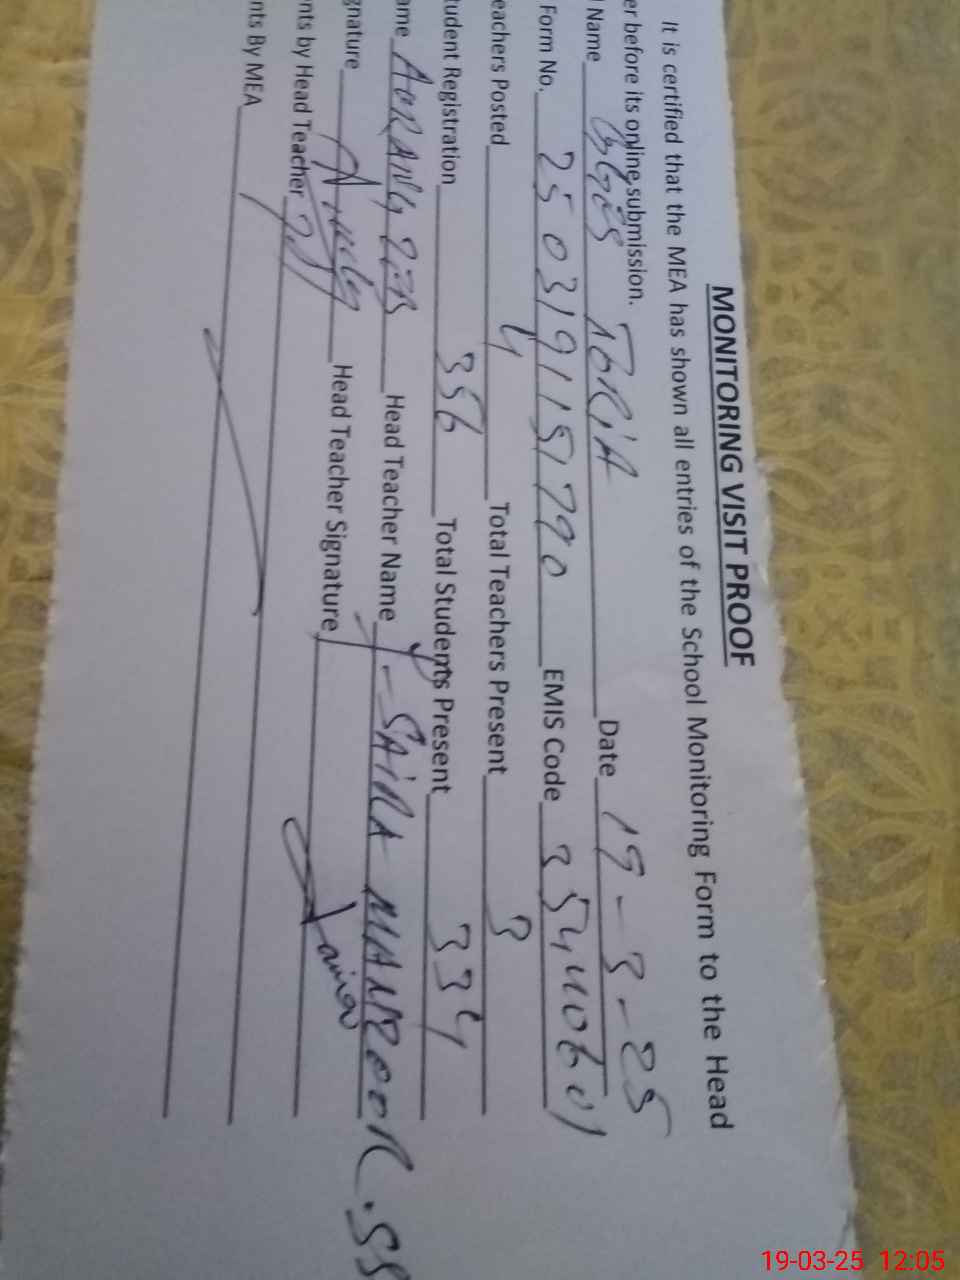 MONITORING VISIT PROOF
It is certified that the MEA has shown all entries of the School Monitoring Form to the Head
er before its online submission.
Name GGES TORIA Date 19-3-25
Form No. 2503191151790 EMIS Code
eachers Posted 4 Total Teachers Present 3
tudent Registration 356 Total Students Present 334
ame AURANGZEB Head Teacher Name SAIRA MANZOOR.
gnature Head Teacher Signature
nts by Head Teacher
nts By MEA
19-03-25 12:05